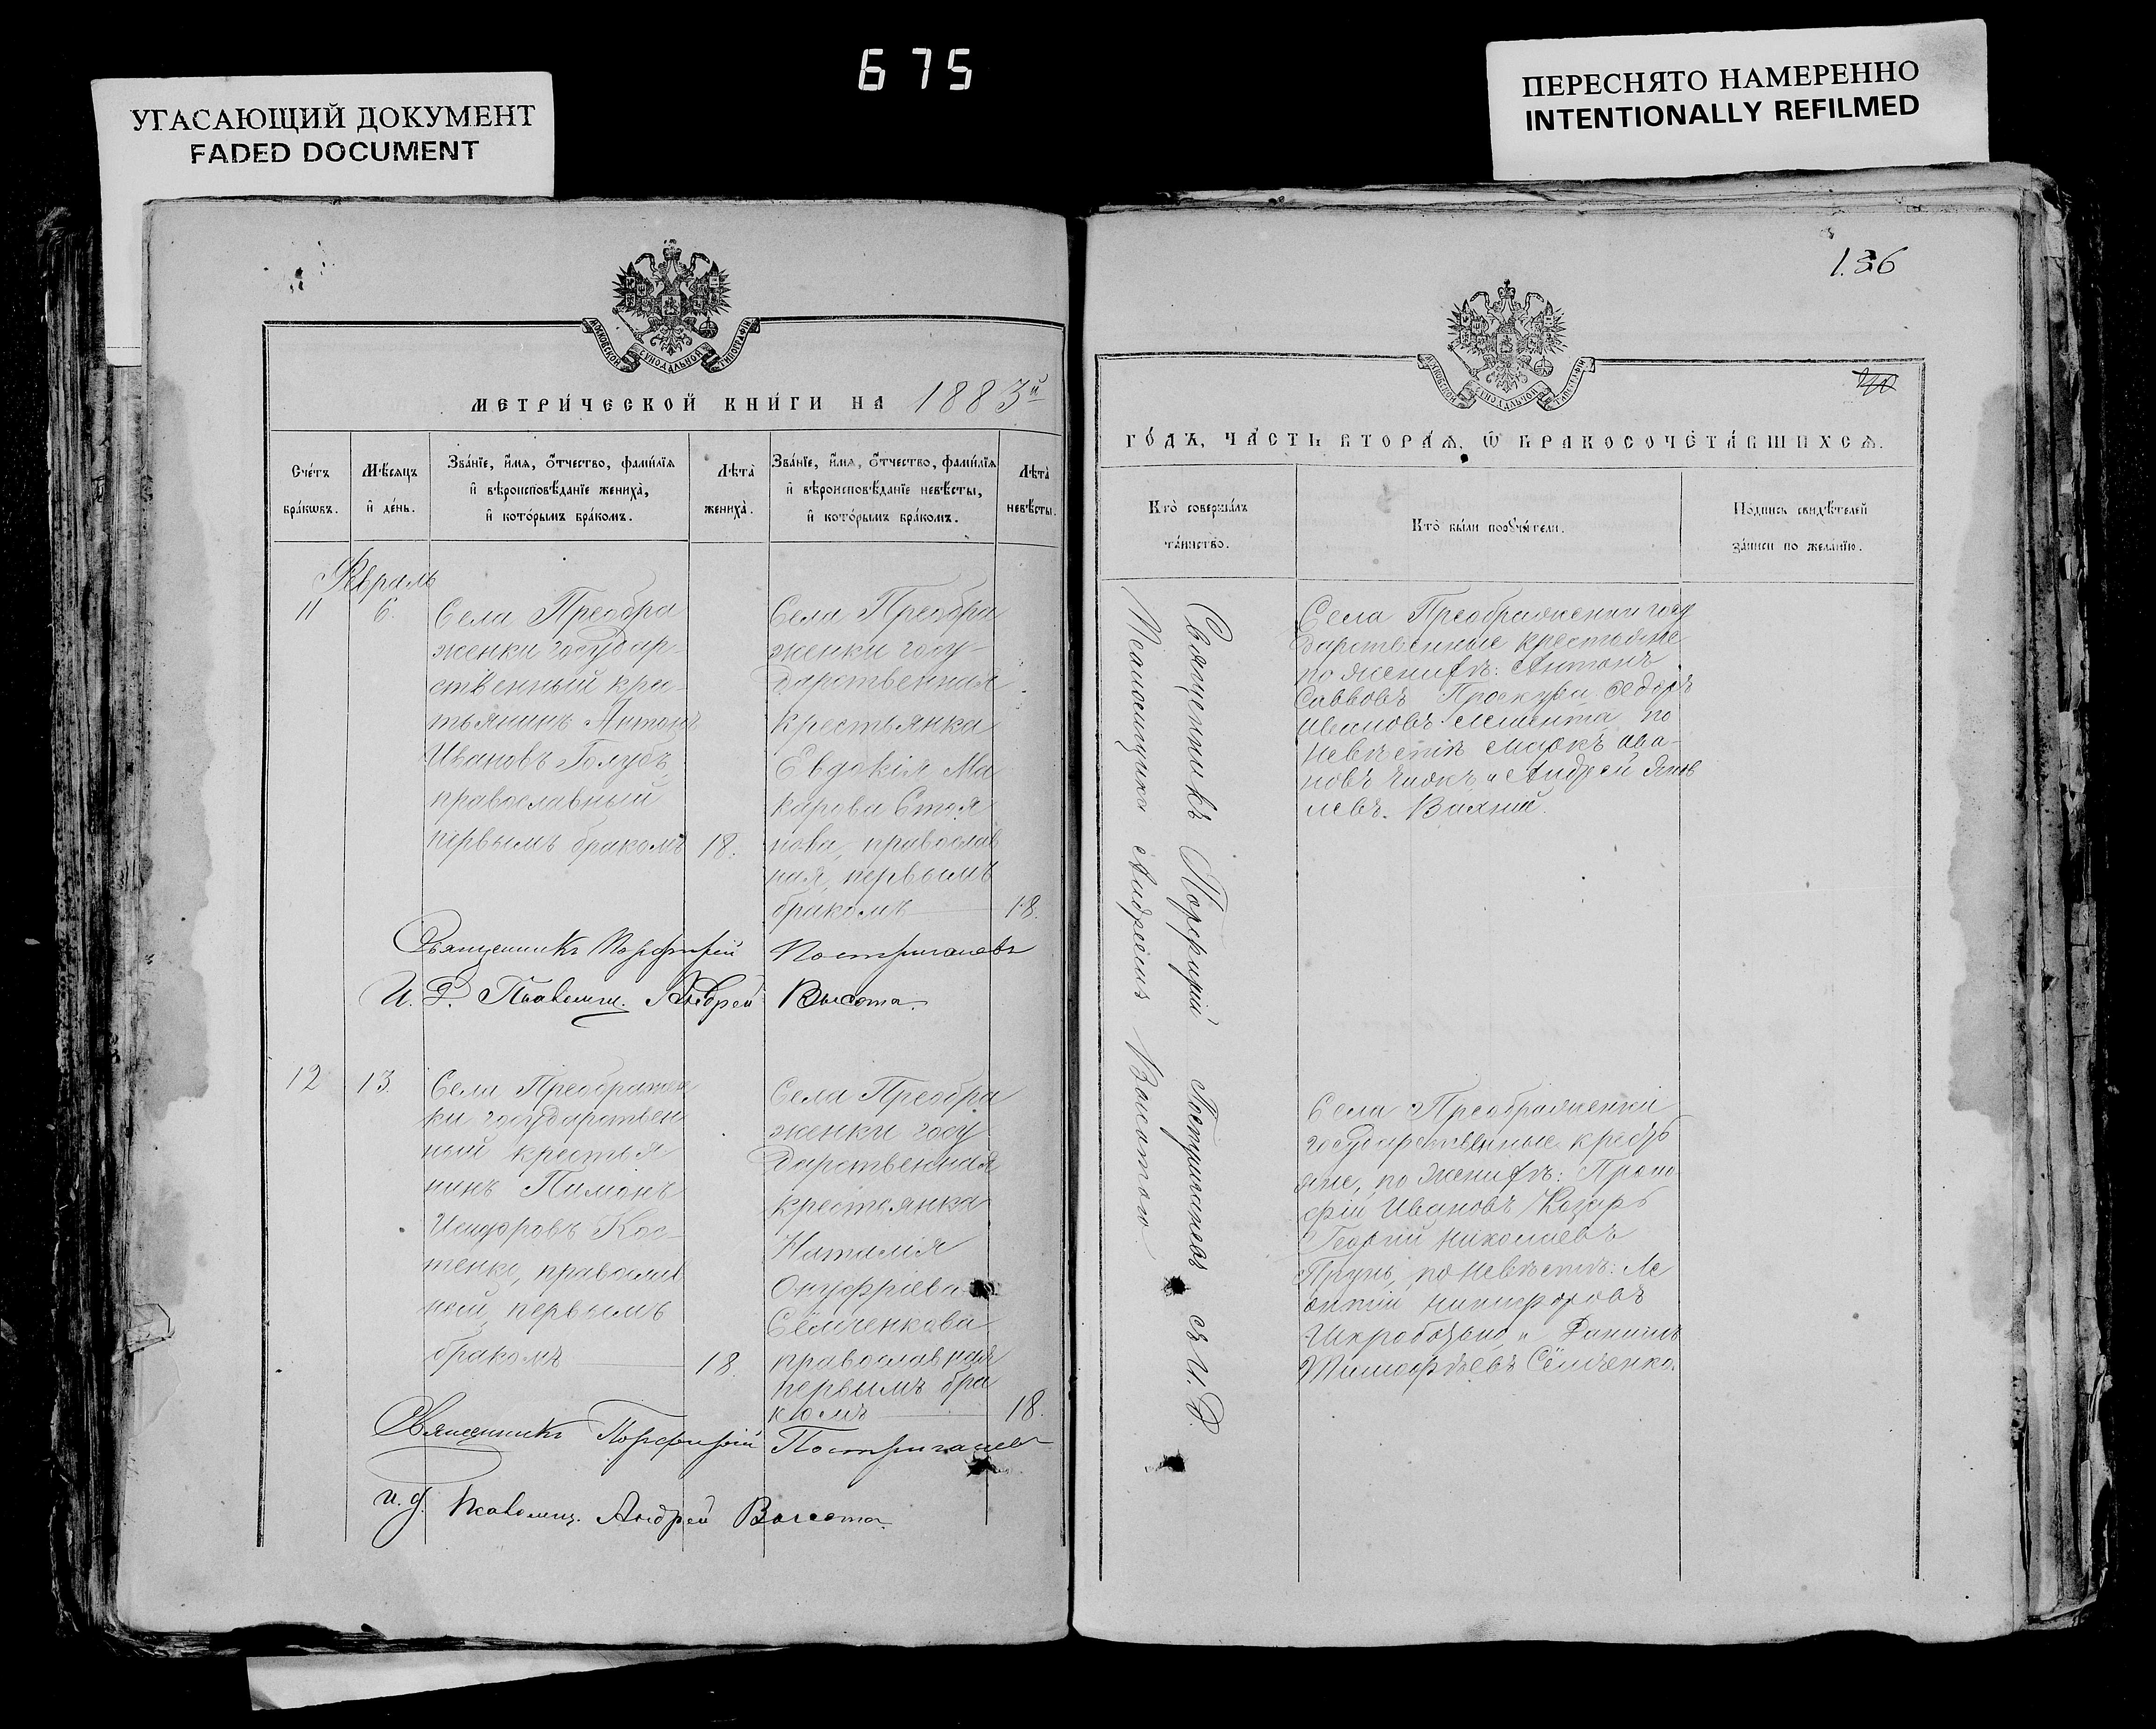 675
УГАСАЮЩИЙ ДОКУМЕНТ
FADED DOCUMENT
ПЕРЕСНЯТО НАМЕРЕННО
INTENTIONALLY REFILMED
МОСКОВСКОЙ СУНОДАЛЬНОЙ ТИПОГРАФІИ
МЕТРИ́ЧЕСКОЙ КНИ́ГИ НА 1883й
Сче́тъ бра́кѡвъ.
Мѣ́сѧцъ и҆ де́нь.
Зва́нїе, и҆́мѧ, ѻ҆́тчество, фами́лїѧ и҆ вѣроисповѣ́данїе жениха̀, и҆ кото́рымъ бра́комъ.
Лѣта̀ жениха̀.
Зва́нїе, и҆́мѧ, ѻ҆́тчество, фами́лїѧ и҆ вѣроисповѣ́данїе невѣ́сты, и҆ кото́рымъ бра́комъ.
Лѣта̀ невѣ́сты.
Февраль
11
6.
Села Преобра
женки государ-
ственный крес-
тьянинъ Антонъ
Ивановъ Голубъ,
православный
первымъ бракомъ
18.
Села Преобра
женки госу-
дарственная
крестьянка
Евдокія Ма
карова Стоя
нова, православ
ная, первымъ
бракомъ
18.
Священникъ Порфирій Постригачевъ
И. Д. Псаломщ. Андрей Высота.
12
13.
Села Преображен
ки государствен
ный крестья
нинъ Пимонъ
Исидоровъ Кос-
тенко, православ
ный, первымъ
бракомъ
18
Села Преобра
женки госу
дарственная
крестьянка
Наталія
Онуфріева
Сёмченкова
православная
первымъ бра
комъ
18.
Священникъ Порфирій Постригачевъ
и. д. Псаломщ. Андрей Высота.
136
МОСКОВСКОЙ СУНОДАЛЬНОЙ ТИПОГРАФІИ
ГО́ДЪ, ЧА́СТЬ ВТОРА́Ѧ, Ѽ БРАКОСОЧЕТА́ВШИХСѦ.
Кто̀ соверша́лъ та́инство.
Кто̀ бы́ли порꙋчи́тели.
По́дпись свидѣ́телей за́писи по жела́нїю.
Священникъ Порфирій Постригачевъ съ И. Д.
Псаломщика Андреемъ Высотою
Села Преображенки госу
дарственные крестьяне
по женихѣ: Антонъ
Савковъ Проскура, Федоръ
Ивановъ по
невѣстѣ Маркъ Ива-
новъ и Андрей Яков
левъ
Села Преображенки
государственные кресть
яне, по женихѣ: Проко
фій Ивановъ Козарь
Георгій Николаевъ
по невѣстѣ: Ле
онтій Никифоровъ
и Даніилъ
Тимофѣевъ Сёмченко.